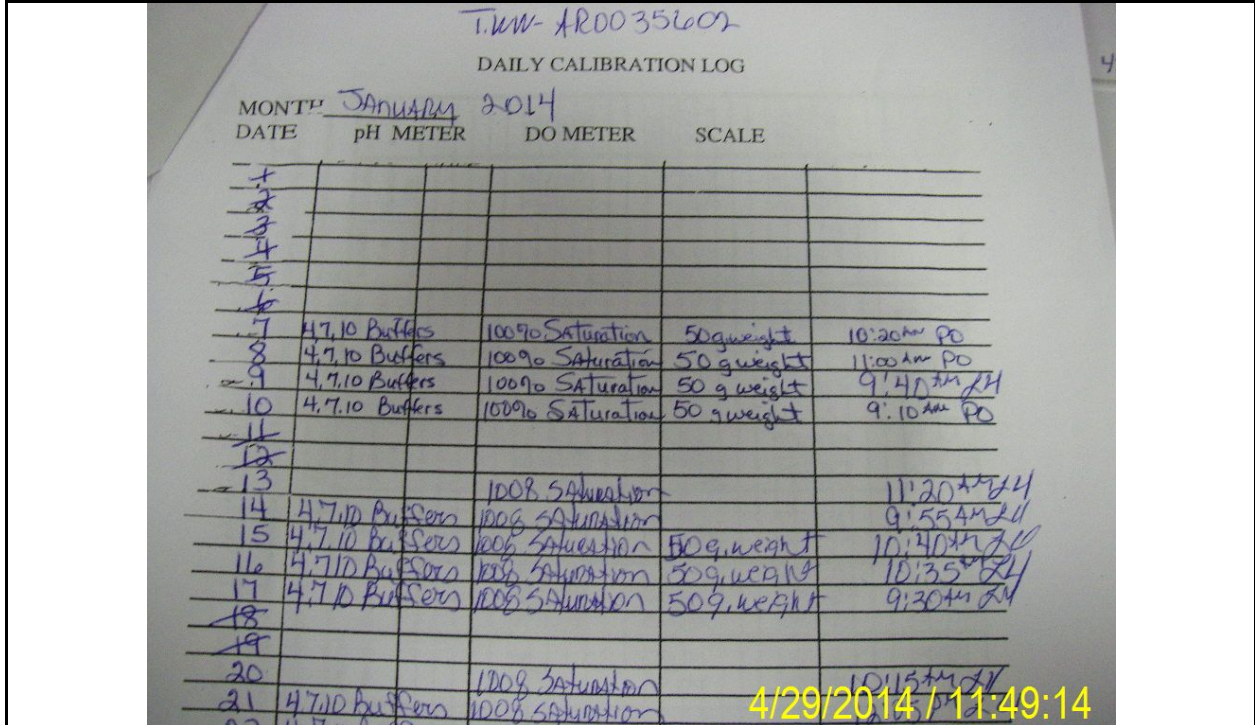 AR0035602
4
DAILY CALIBRATION LOG
MONTH JANUARY 2014
DATE pH METER DO METER SCALE
1
2
3
4
5
6
7 4.7.10 Buffers 100% Saturation 50 g weight 10:20 AM PO
8 4.7.10 Buffers 100% Saturation 50 g weight 11:00 AM PO
9 4.7.10 Buffers 100% Saturation 50 g weight 9:40 AM LH
10 4.7.10 Buffers 100% Saturation 50 g weight 9:10 AM PO
11
12
13 100% Saturation 11:20 AM LH
14 4.7.10 Buffers 100% Saturation 9:55 AM LH
15 4.7.10 Buffers 100% Saturation 50 g. weight 10:40 AM LH
16 4.7.10 Buffers 100% Saturation 50 g. weight 10:35 AM LH
17 4.7.10 Buffers 100% Saturation 50 g. weight 9:30 AM LH
18
19
20 100% Saturation 10:15 AM LH
21 4.7.10 Buffers 100% Saturation
4/29/2014 / 11:49:14